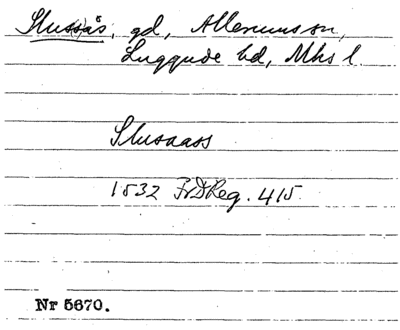 Slus(s)ås, gd, Allerums sn,
Luggude hd, Mhs l.
Slusaass
1532 FrDReg. 415.
Nr 5670.